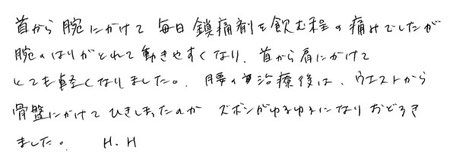 首から腕にかけて毎日鎮痛剤を飲む程の痛みでしたが
腕のはりがとれて動きやすくなり、首から肩にかけて
とても軽くなりました。腰の治療後は、ウエストから
骨盤にかけてひきしまったのか ズボンがゆるゆるになりおどろき
ました。 H.H